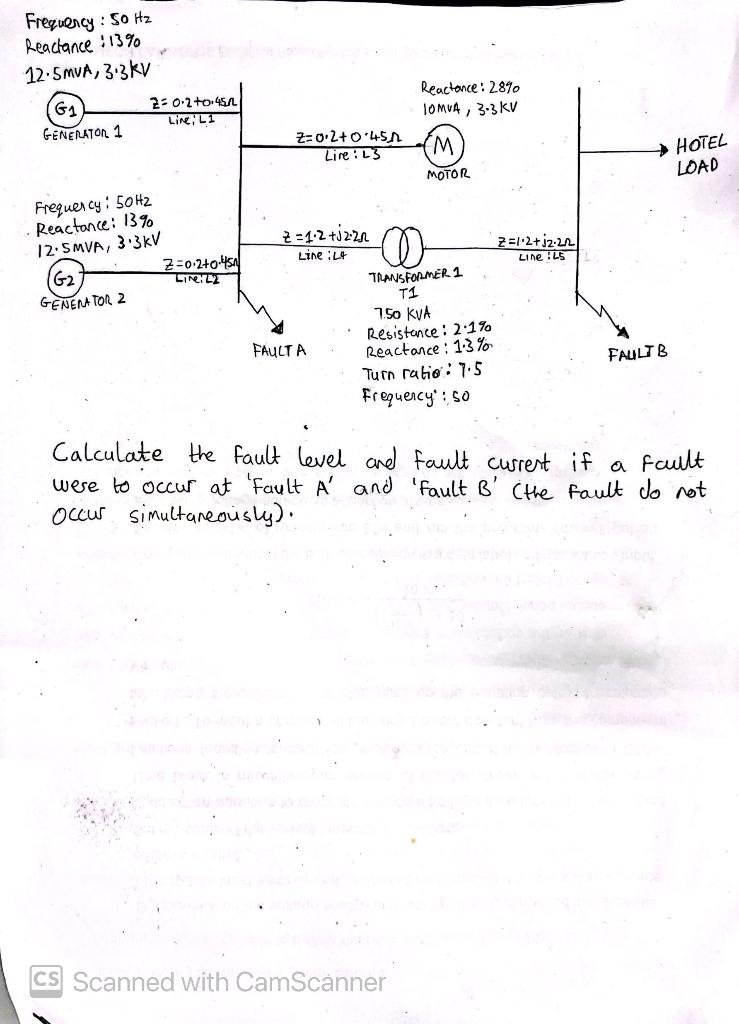 Frequency : 50 Hz
Reactance : 13%
12.5MVA, 3.3KV
G1
Z= 0.2+0.45Ω
Line: L1
GENERATOR 1
Reactance: 28%
10MVA, 3.3KV
Z=0.2+0.45Ω
Line: L3
M
MOTOR
HOTEL
LOAD
Frequency: 50Hz
Reactance: 13%
12.5MVA, 3.3KV
G2
Z=0.2+0.45Ω
Line: L2
GENERATOR 2
Z=1.2+j2.2Ω
Line: L4
Z=1.2+j2.2Ω
Line: L5
TRANSFORMER 1
T1
750 KVA
Resistance: 2.1%
Reactance: 1.3%
Turn ratio: 7.5
Frequency: 50
FAULT A
FAULT B
Calculate the fault level and fault current if a fault
were to occur at 'Fault A' and 'Fault B' (the fault do not
occur simultaneously).
CS Scanned with CamScanner